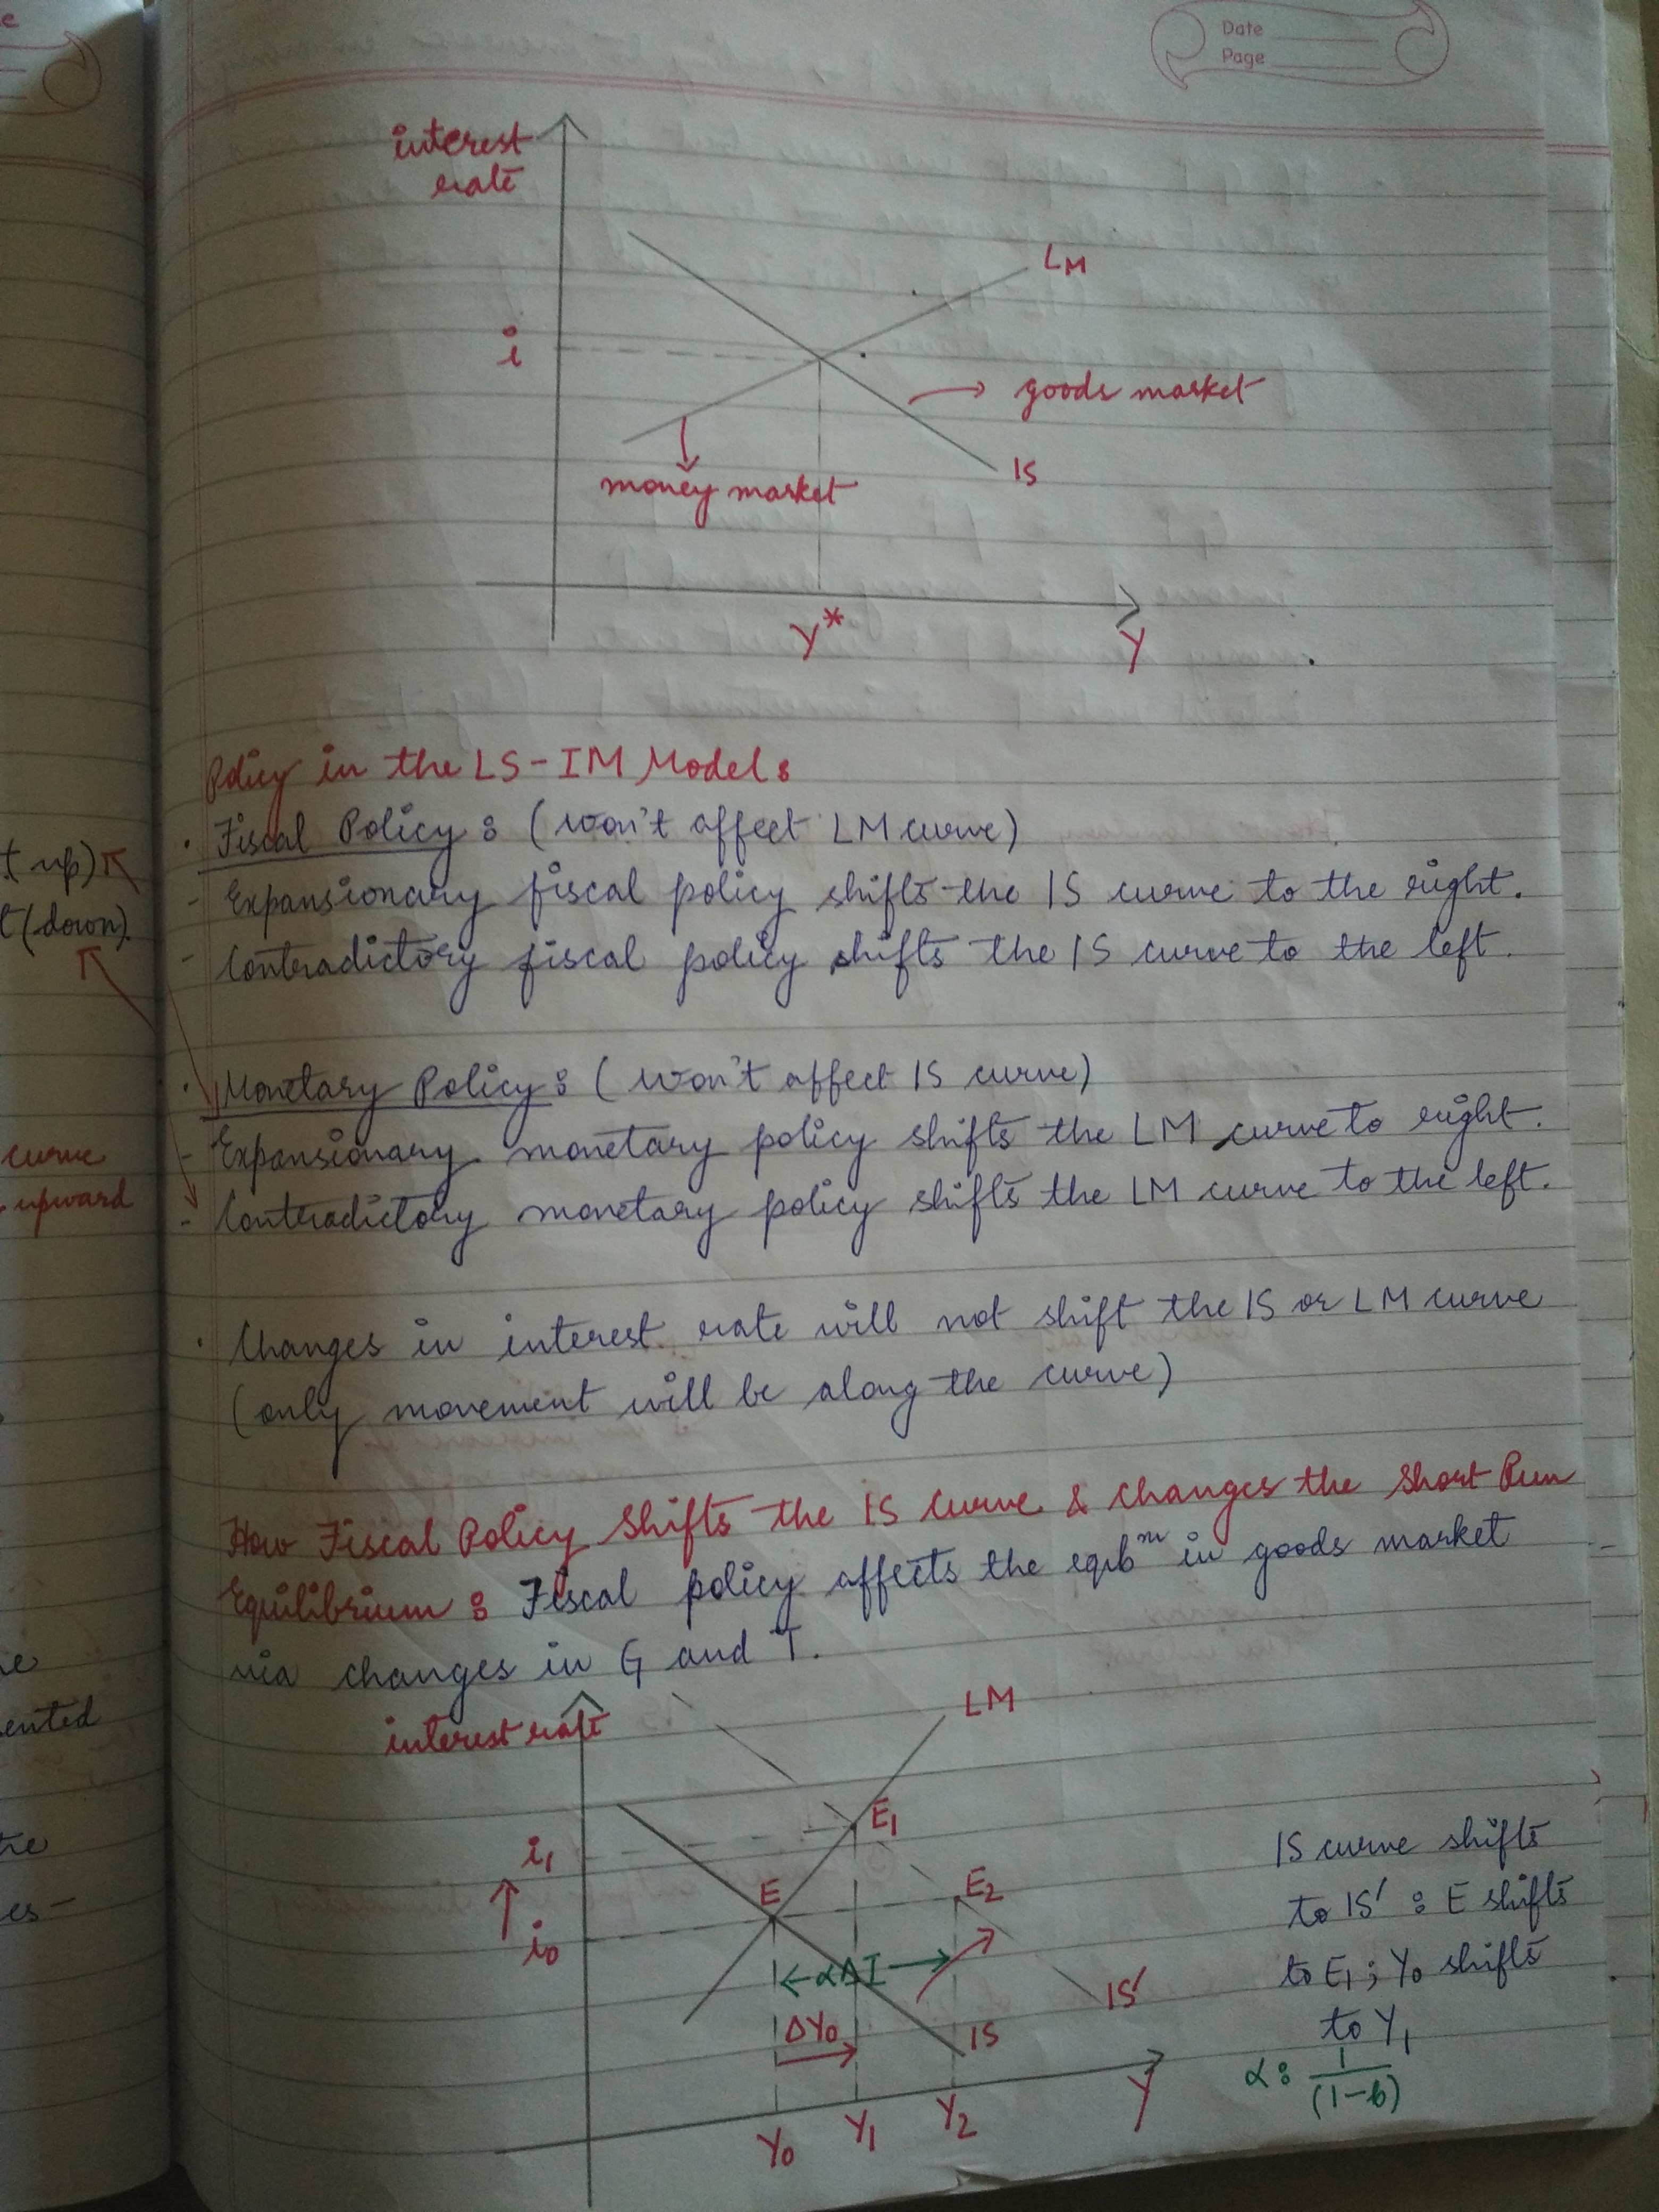 e
Date
Page
interest
rate
LM
i
goods market
IS
money market
Y*
Y
Policy in the LS-IM Model:
• Fiscal Policy: (won't affect LM curve)
t up)
- Expansionary fiscal policy shifts the IS curve to the right.
t (down).
- Contradictory fiscal policy shifts the IS curve to the left.
• Monetary Policy: (won't affect IS curve)
- Expansionary monetary policy shifts the LM curve to right.
curve
upward
- Contradictory monetary policy shifts the LM curve to the left.
• Changes in interest rate will not shift the IS or LM curve
(only movement will be along the curve)
How Fiscal Policy Shifts the IS Curve & Changes the Short Run
Equilibrium: Fiscal policy affects the eqbᵐ in goods market
via changes in G and T.
ented
es-
interest rate
LM
E1
i1
E
E2
i0
←αΔI→
IS'
ΔY0
IS
Y
Y0
Y1
Y2
IS curve shifts
to IS' : E shifts
to E1 ; Y0 shifts
to Y1
α: 1/(1-b)